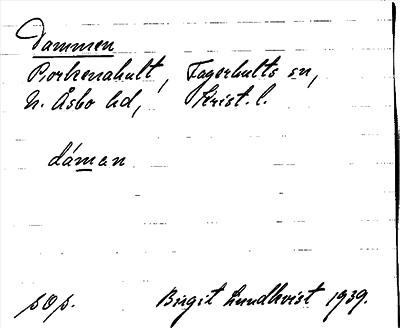 Dammen
Porkenahult, Fagerhults sn,
N. Åsbo hd, Krist. l.
dáman
sOs. Birgit Lundkvist 1939.